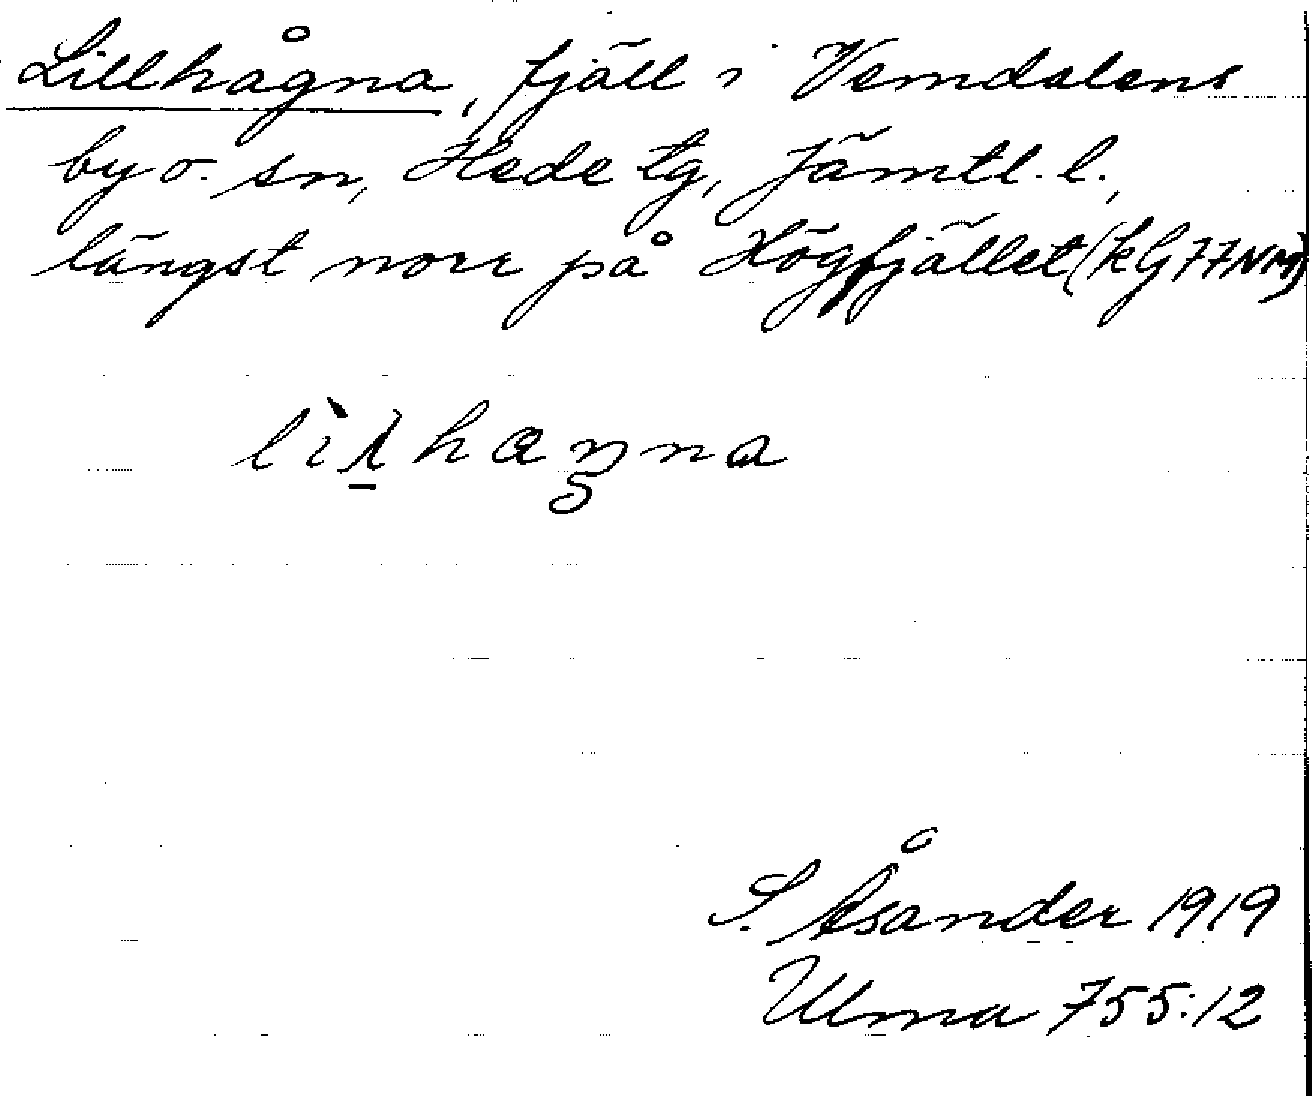 Lillhågna, fjäll i Vemdalens
by o. sn, Hede tg, Jämtl. l.,
längst norr på Högfjället (kG 77 NM)
S. Åsander 1919
Ulma 755:12